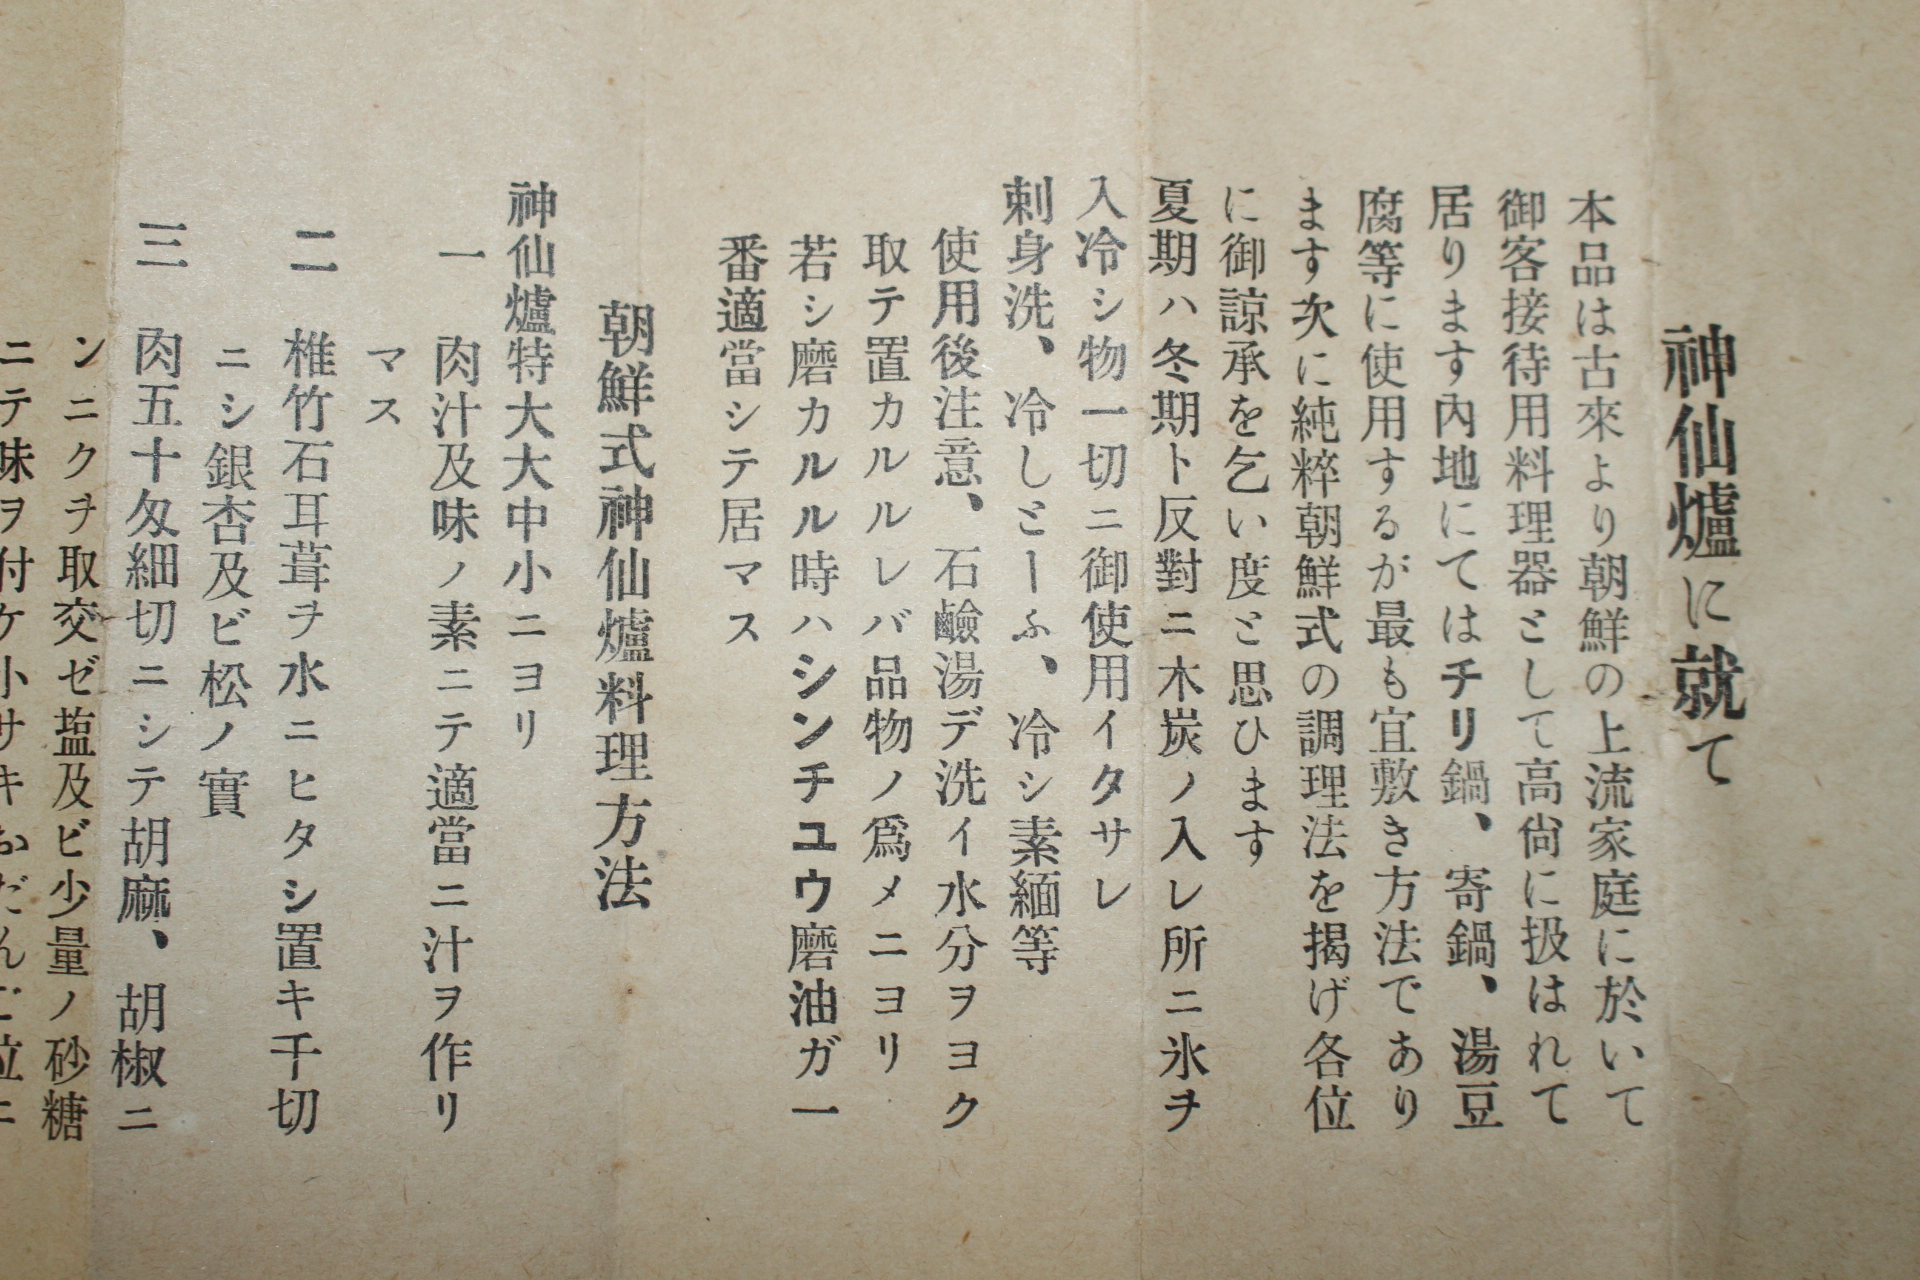 神仙爐に就て
本品は古來より朝鮮の上流家庭に於いて
御客接待用料理器として高尙に扱はれて
居ります內地にてはチリ鍋、寄鍋、湯豆
腐等に使用するが最も宜敷き方法であり
ます次に純粹朝鮮式の調理法を揭げ各位
に御諒承を乞い度と思ひます
夏期ハ冬期ト反對ニ木炭ノ入レ所ニ氷ヲ
入冷シ物一切ニ御使用イタサレ
刺身洗、冷しとーふ、冷シ素緬等
使用後注意、石鹼湯デ洗イ水分ヲヨク
取テ置カルルレバ品物ノ爲メニヨリ
若シ磨カルル時ハシンチユウ磨油ガ一
番適當シテ居マス
朝鮮式神仙爐料理方法
神仙爐特大大中小ニヨリ
一 肉汁及味ノ素ニテ適當ニ汁ヲ作リ
マス
二 椎竹石耳葺ヲ水ニヒタシ置キ千切
ニシ銀杏及ビ松ノ實
三 肉五十匁細切ニシテ胡麻、胡椒ニ
ンニクヲ取交ゼ塩及ビ少量ノ砂糖
ニテ味ヲ付ケ小サキおだんご位ニ